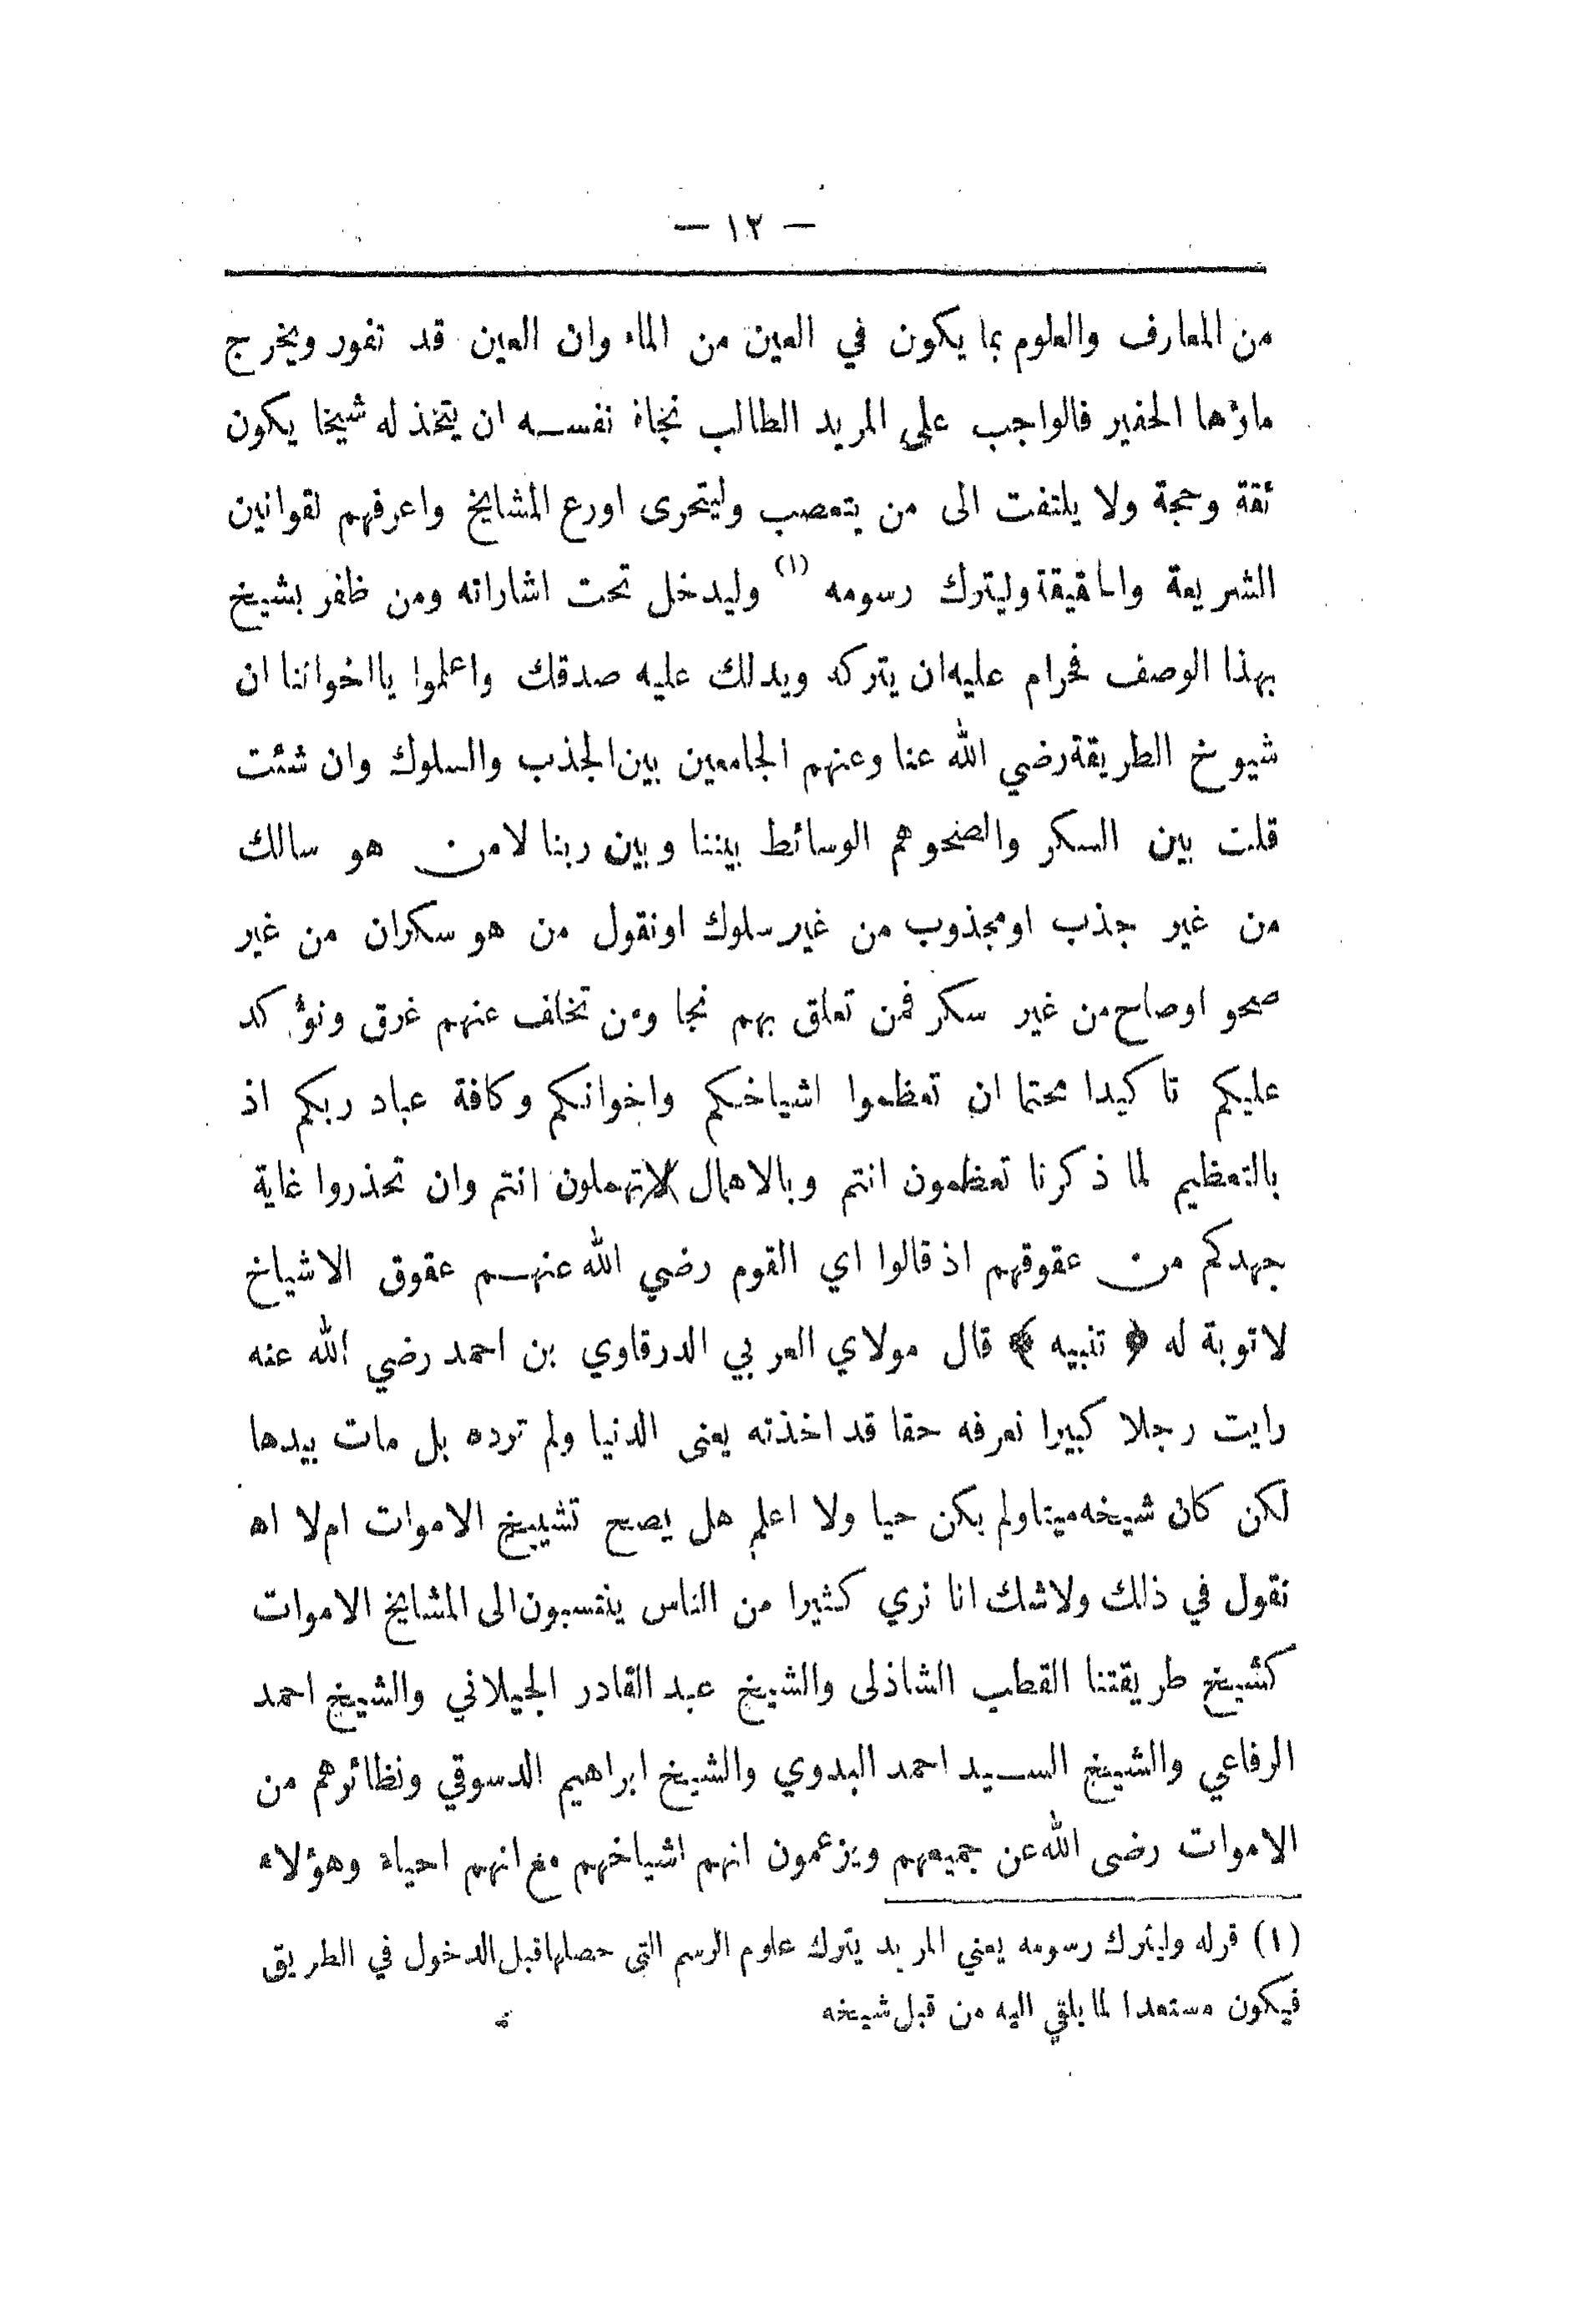 — ١٢ —
من المعارف والعلوم بما يكون في العين من الماء وان العين قد تفور ويخرج
ماؤها الحفير فالواجب على المريد الطالب نجاة نفسه ان يتخذ له شيخا يكون
ثقة وحجة ولا يلتفت الى من يتعصب وليتحرى اورع المشايخ واعرفهم لقوانين
الشريعة والحقيقة وليترك رسومه (١) وليدخل تحت اشاراته ومن ظفر بشيخ
بهذا الوصف فحرام عليه ان يتركه ويدلك عليه صدقك واعلموا يااخواننا ان
شيوخ الطريقة رضي الله عنا وعنهم الجامعين بين الجذب والسلوك وان شئت
قلت بين السكر والصحوهم الوسائط بيننا وبين ربنا لا من هو سالك
من غير جذب اومجذوب من غير سلوك اونقول من هو سكران من غير
صحو اوصاح من غير سكر فمن تعلق بهم نجا ومن تخلف عنهم غرق ونؤكد
عليكم تاكيدا محتما ان تعظموا اشياخكم واخوانكم وكافة عباد ربكم اذ
بالتعظيم لما ذكرنا تعظمون انتم وبالاهمال لاتهملون انتم وان تحذروا غاية
جهدكم من عقوقهم اذ قالوا اي القوم رضي الله عنهم عقوق الاشياخ
لاتوبة له ﴿ تنبيه ﴾ قال مولاي العربي الدرقاوي بن احمد رضي الله عنه
رايت رجلا كبيرا نعرفه حقا قد اخذته يعنى الدنيا ولم ترده بل مات بيدها
لكن كان شيخه ميتا ولم يكن حيا ولا اعلم هل يصح تشييخ الاموات ام لا اه
نقول في ذلك ولاشك انا نري كثيرا من الناس ينتسبون الى المشايخ الاموات
كشيخ طريقتنا القطب الشاذلى والشيخ عبد القادر الجيلاني والشيخ احمد
الرفاعي والشيخ السيد احمد البدوي والشيخ ابراهيم الدسوقي ونظائرهم من
الاموات رضى الله عن جميعهم ويزعمون انهم اشياخهم مع انهم احياء وهؤلاء
(١) قوله وليترك رسومه يعني المريد يترك علوم الرسم التى حصلها قبل الدخول في الطريق
فيكون مستعدا لما يلقي اليه من قبل شيخه